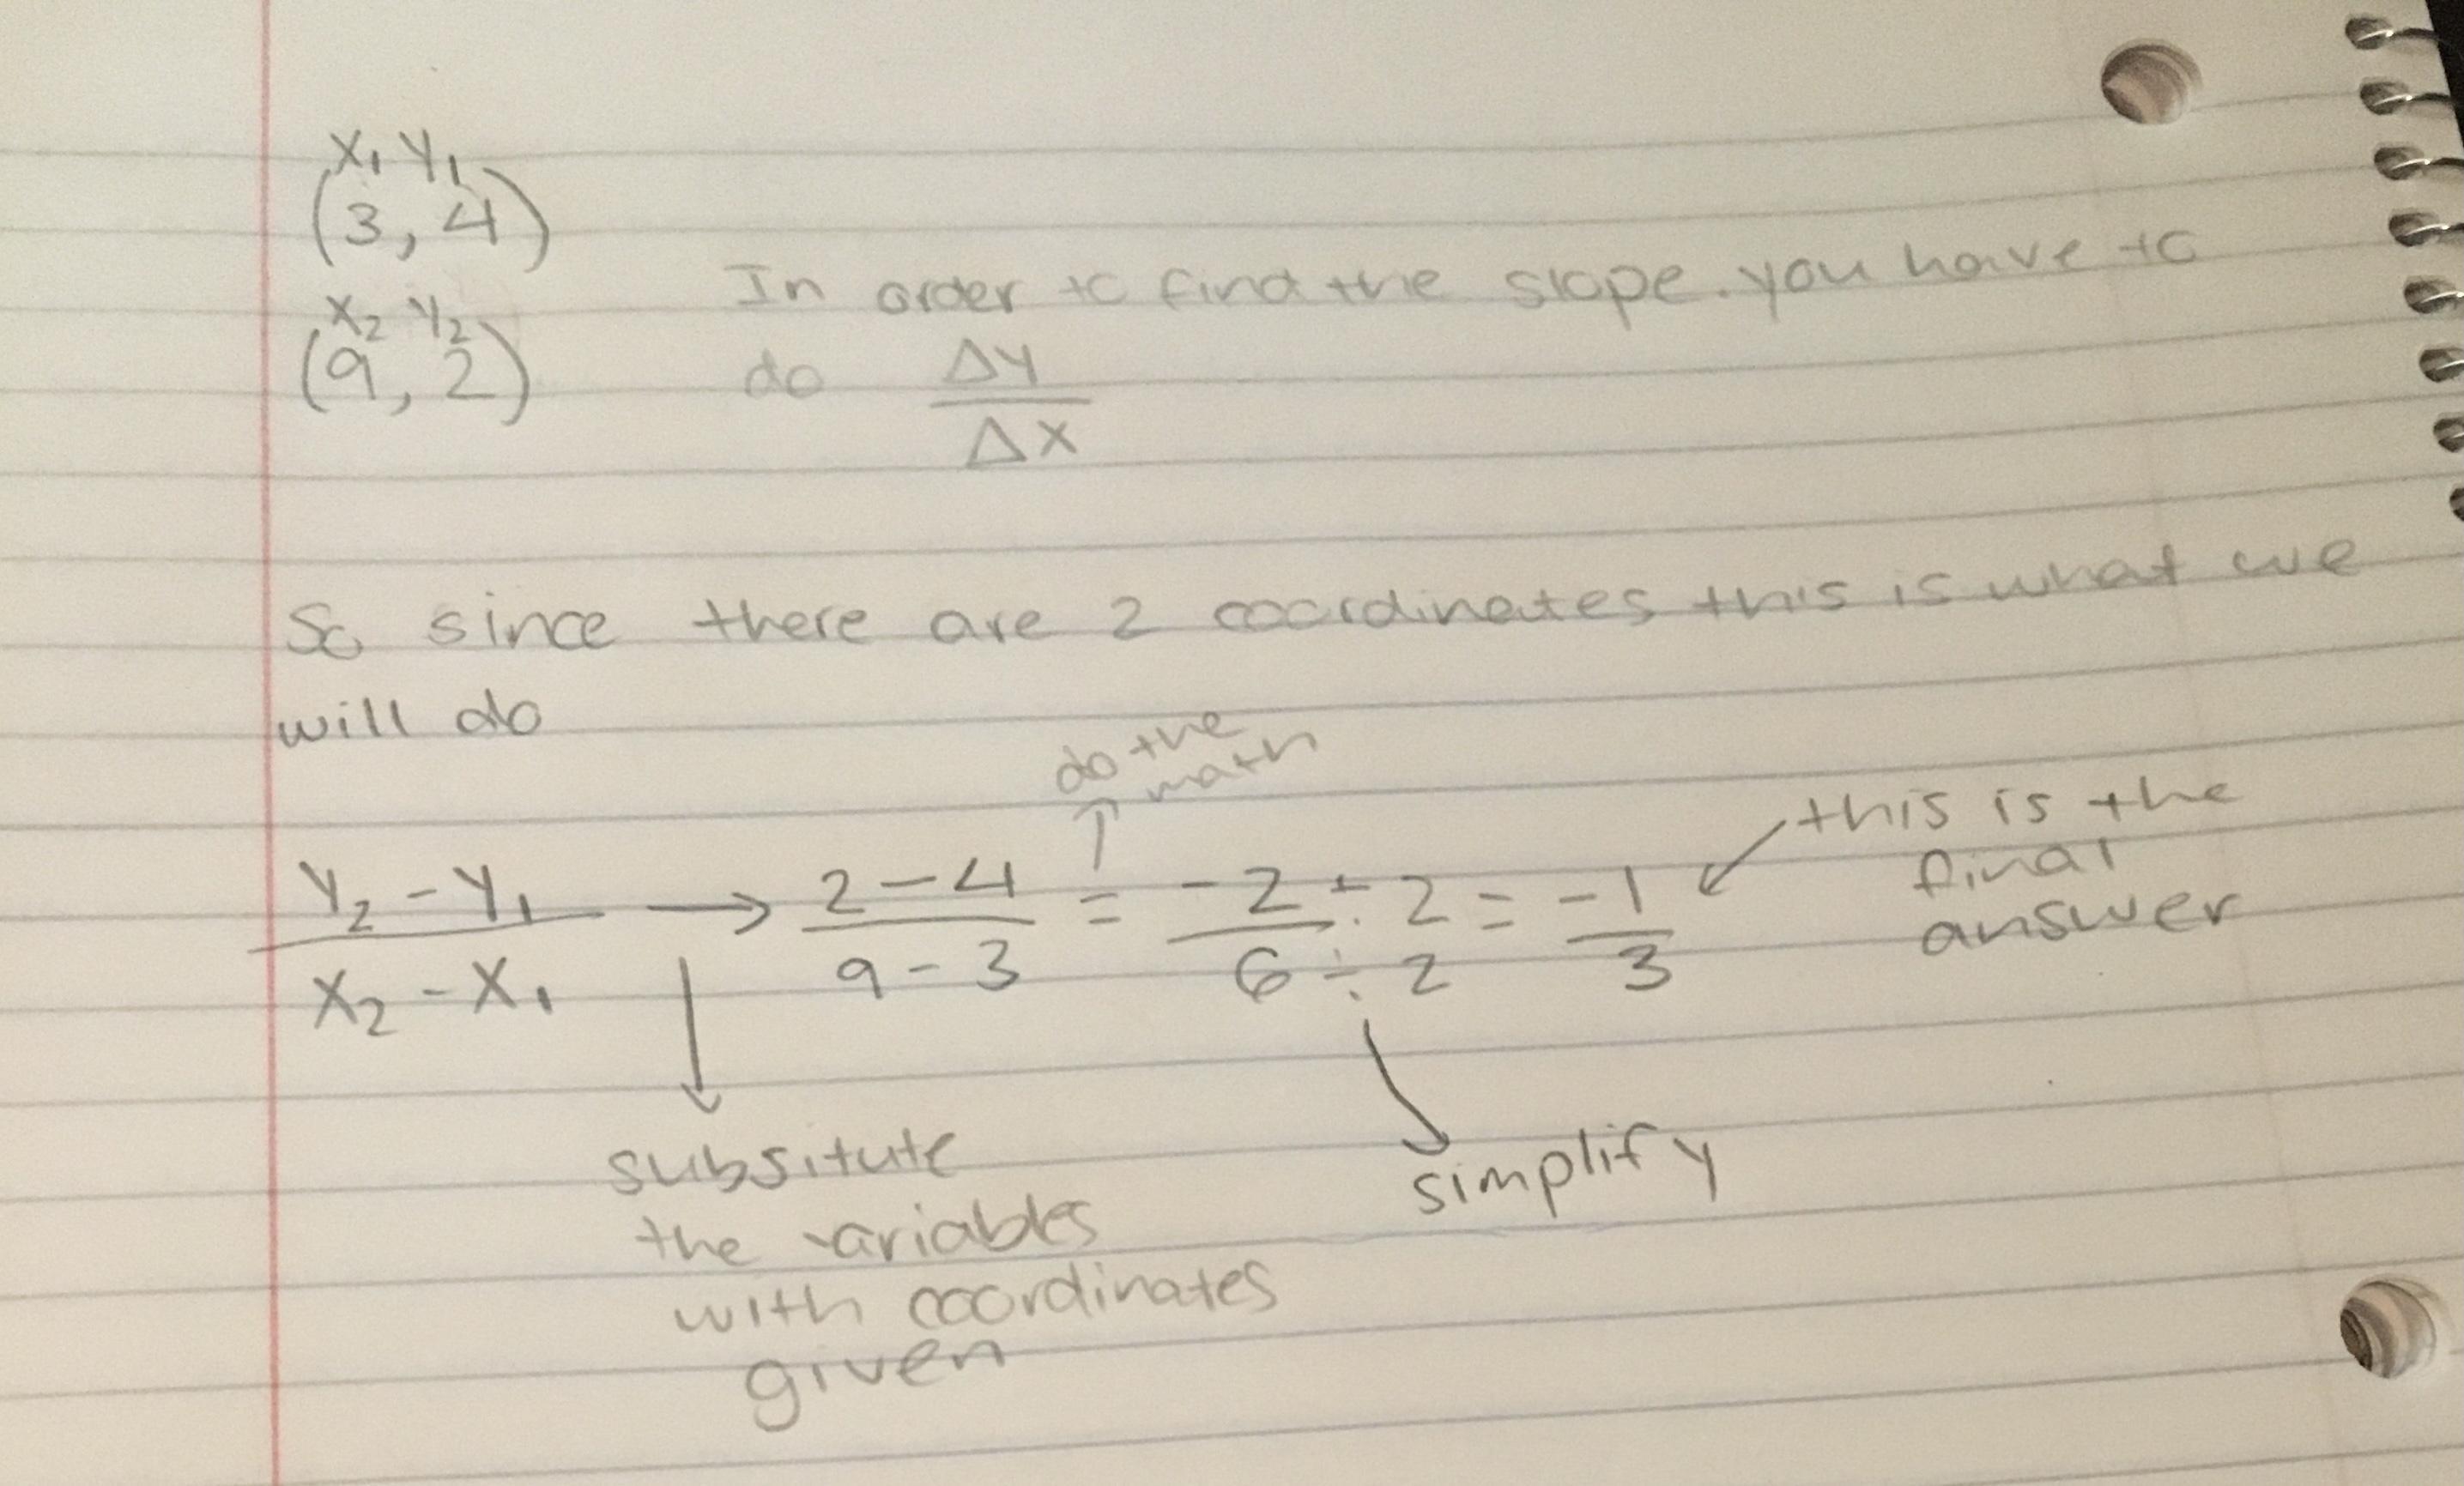 x₁ y₁
(3, 4)
x₂ y₂
(9, 2)
In order to find the slope. you have to
do Δy
Δx
So since there are 2 coordinates this is what we
will do
do the
math
this is the
final
answer
y₂ - y₁ → 2 - 4 = -2 ÷ 2 = -1
x₂ - x₁ 9 - 3 6 ÷ 2 3
subsitute
the variables
with coordinates
given
simplify